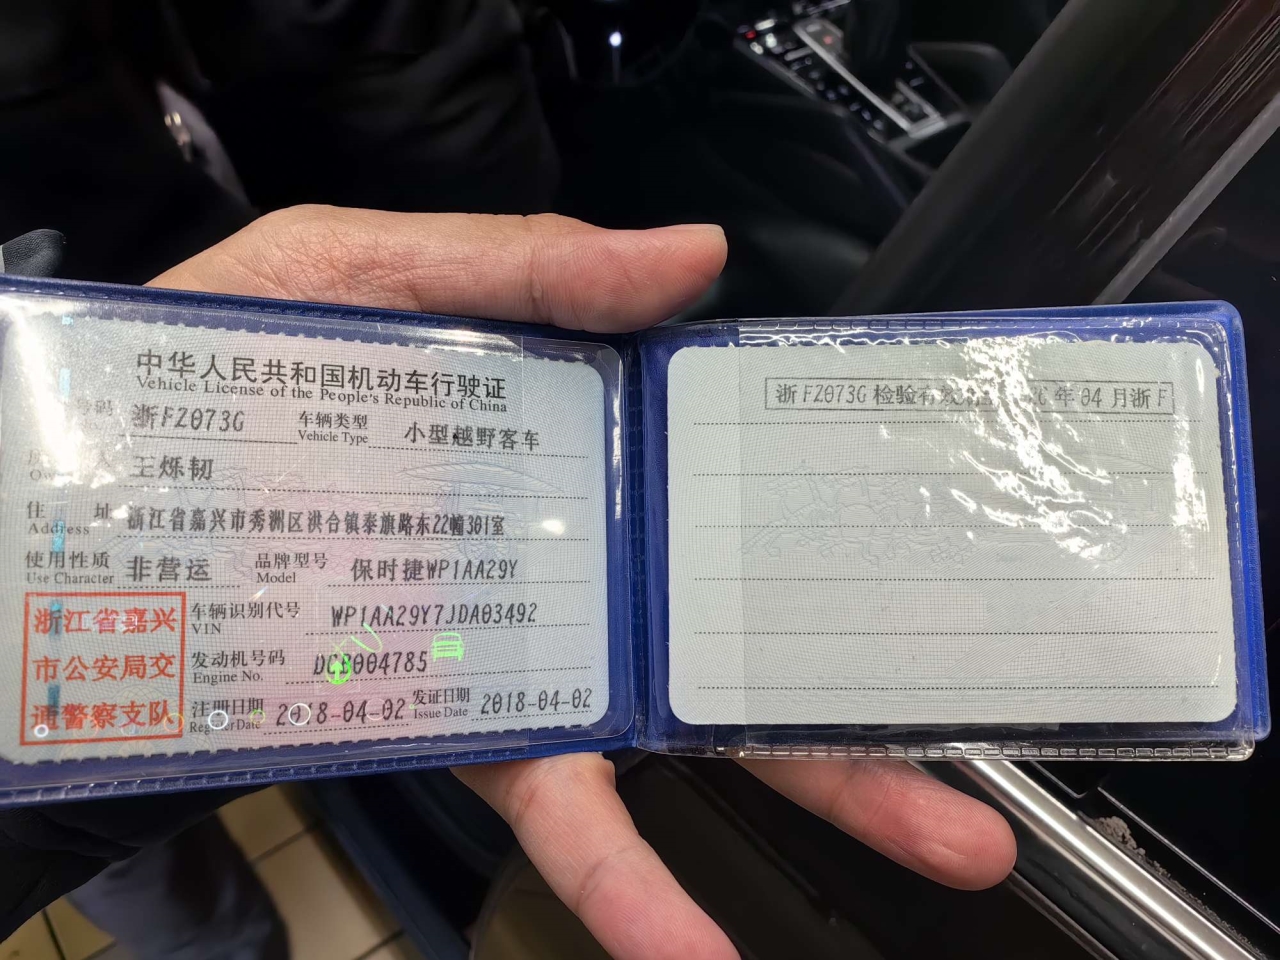 中华人民共和国机动车行驶证
Vehicle License of the People's Republic of China
号码 浙FZ073G 车辆类型 小型越野客车
Vehicle Type
人 王烁韧
住 址 浙江省嘉兴市秀洲区洪合镇泰旗路东22幢301室
Address
使用性质 非营运 品牌型号 保时捷WP1AA29Y
Use Character Model
浙江省嘉兴
市公安局交
通警察支队
车辆识别代号 WP1AA29Y7JDA03492
VIN
发动机号码 004785
Engine No.
注册日期 2018-04-02 发证日期 2018-04-02
Register Date Issue Date
浙FZ073G 检验有 年04月浙F